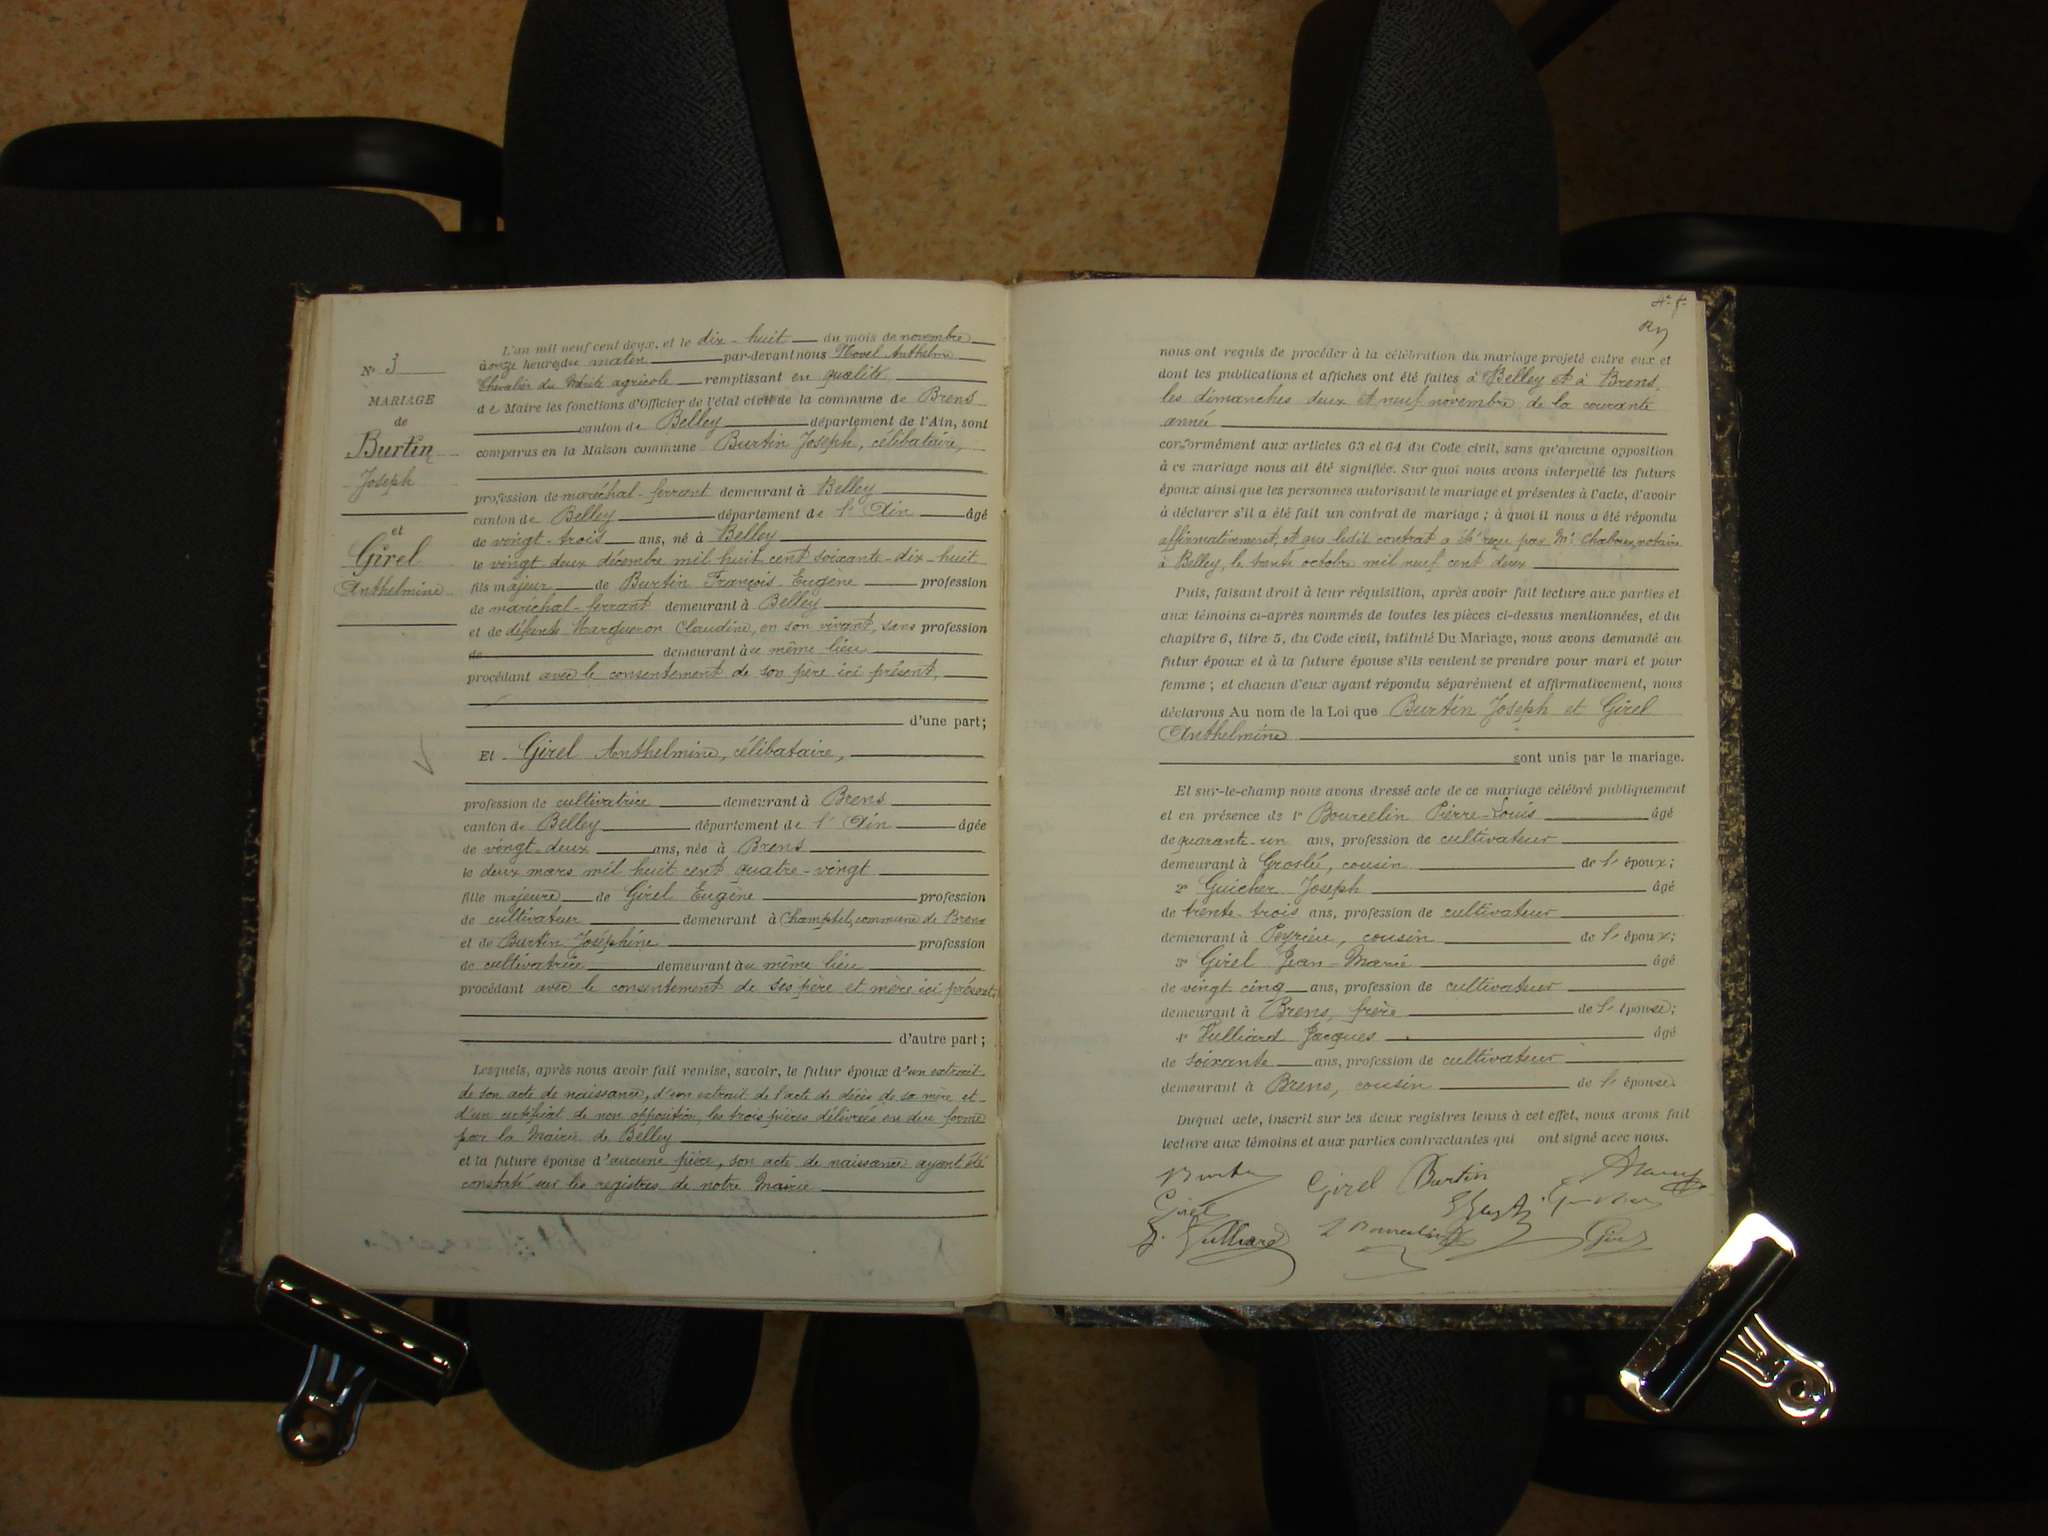 N° 3
MARIAGE
de
Burtin
Joseph
et
Girel
Anthelmine
L'an mil neuf cent deux, et le dix-huit du mois de novembre
à onze heures du matin par-devant nous Hovel Anthelme
Chevalier du Mérite agricole remplissant en qualité
de Maire les fonctions d'Officier de l'état civil de la commune de Brens
canton de Belley département de l'Ain, sont
comparus en la Maison commune Burtin Joseph, célibataire,
profession de maréchal-ferrant demeurant à Belley
canton de Belley département de l'Ain âgé
de vingt-trois ans, né à Belley
le vingt deux décembre mil huit cent soixante-dix-huit
fils majeur de Burtin François Eugène profession
de maréchal-ferrant demeurant à Belley
et de défunte Margueron Claudine, en son vivant, sans profession
de demeurant au même lieu
procédant avec le consentement de son père ici présent,
d'une part;
Et Girel Anthelmine, célibataire,
profession de cultivatrice demeurant à Brens
canton de Belley département de l'Ain âgée
de vingt-deux ans, née à Brens
le deux mars mil huit cent quatre-vingt
fille majeure de Girel Eugène profession
de cultivateur demeurant à Champtel, commune de Brens
et de Burtin Joséphine profession
de cultivatrice demeurant au même lieu
procédant avec le consentement de ses père et mère ici présents,
d'autre part;
Lesquels, après nous avoir fait remise, savoir, le futur époux d'un extrait
de son acte de naissance, d'un extrait de l'acte de décès de sa mère et
d'un certificat de non opposition, les trois pièces délivrées en due forme
par la Mairie de Belley
et la future épouse d'aucune pièce, son acte de naissance ayant été
constaté sur les registres de notre Mairie
nous ont requis de procéder à la célébration du mariage projeté entre eux et
dont les publications et affiches ont été faites à Belley et à Brens,
les dimanches deux et neuf novembre de la courante
année
conformément aux articles 63 et 64 du Code civil, sans qu'aucune opposition
à ce mariage nous ait été signifiée. Sur quoi nous avons interpellé les futurs
époux ainsi que les personnes autorisant le mariage et présentes à l'acte, d'avoir
à déclarer s'il a été fait un contrat de mariage; à quoi il nous a été répondu
affirmativement, et que ledit contrat a été reçu par Me notaire
à Belley, le trente octobre mil neuf cent deux
Puis, faisant droit à leur réquisition, après avoir fait lecture aux parties et
aux témoins ci-après nommés de toutes les pièces ci-dessus mentionnées, et du
chapitre 6, titre 5, du Code civil, intitulé Du Mariage, nous avons demandé au
futur époux et à la future épouse s'ils veulent se prendre pour mari et pour
femme; et chacun d'eux ayant répondu séparément et affirmativement, nous
déclarons Au nom de la Loi que Burtin Joseph et Girel
Anthelmine
sont unis par le mariage.
Et sur-le-champ nous avons dressé acte de ce mariage célébré publiquement
et en présence de 1° Bourcelin Pierre-Louis âgé
de quarante-un ans, profession de cultivateur
demeurant à Groslée, cousin de l'époux;
2° Guicher Joseph âgé
de trente-trois ans, profession de cultivateur
demeurant à Peyrieu, cousin de l'époux;
3° Girel Jean-Marie âgé
de vingt cinq ans, profession de cultivateur
demeurant à Brens, frère de l'épouse;
4° Vulliard Jacques âgé
de soixante ans, profession de cultivateur
demeurant à Brens, cousin de l'épouse
Duquel acte, inscrit sur les deux registres tenus à cet effet, nous avons fait
lecture aux témoins et aux parties contractantes qui ont signé avec nous.
Girel Burtin
Girel
J. Vulliard